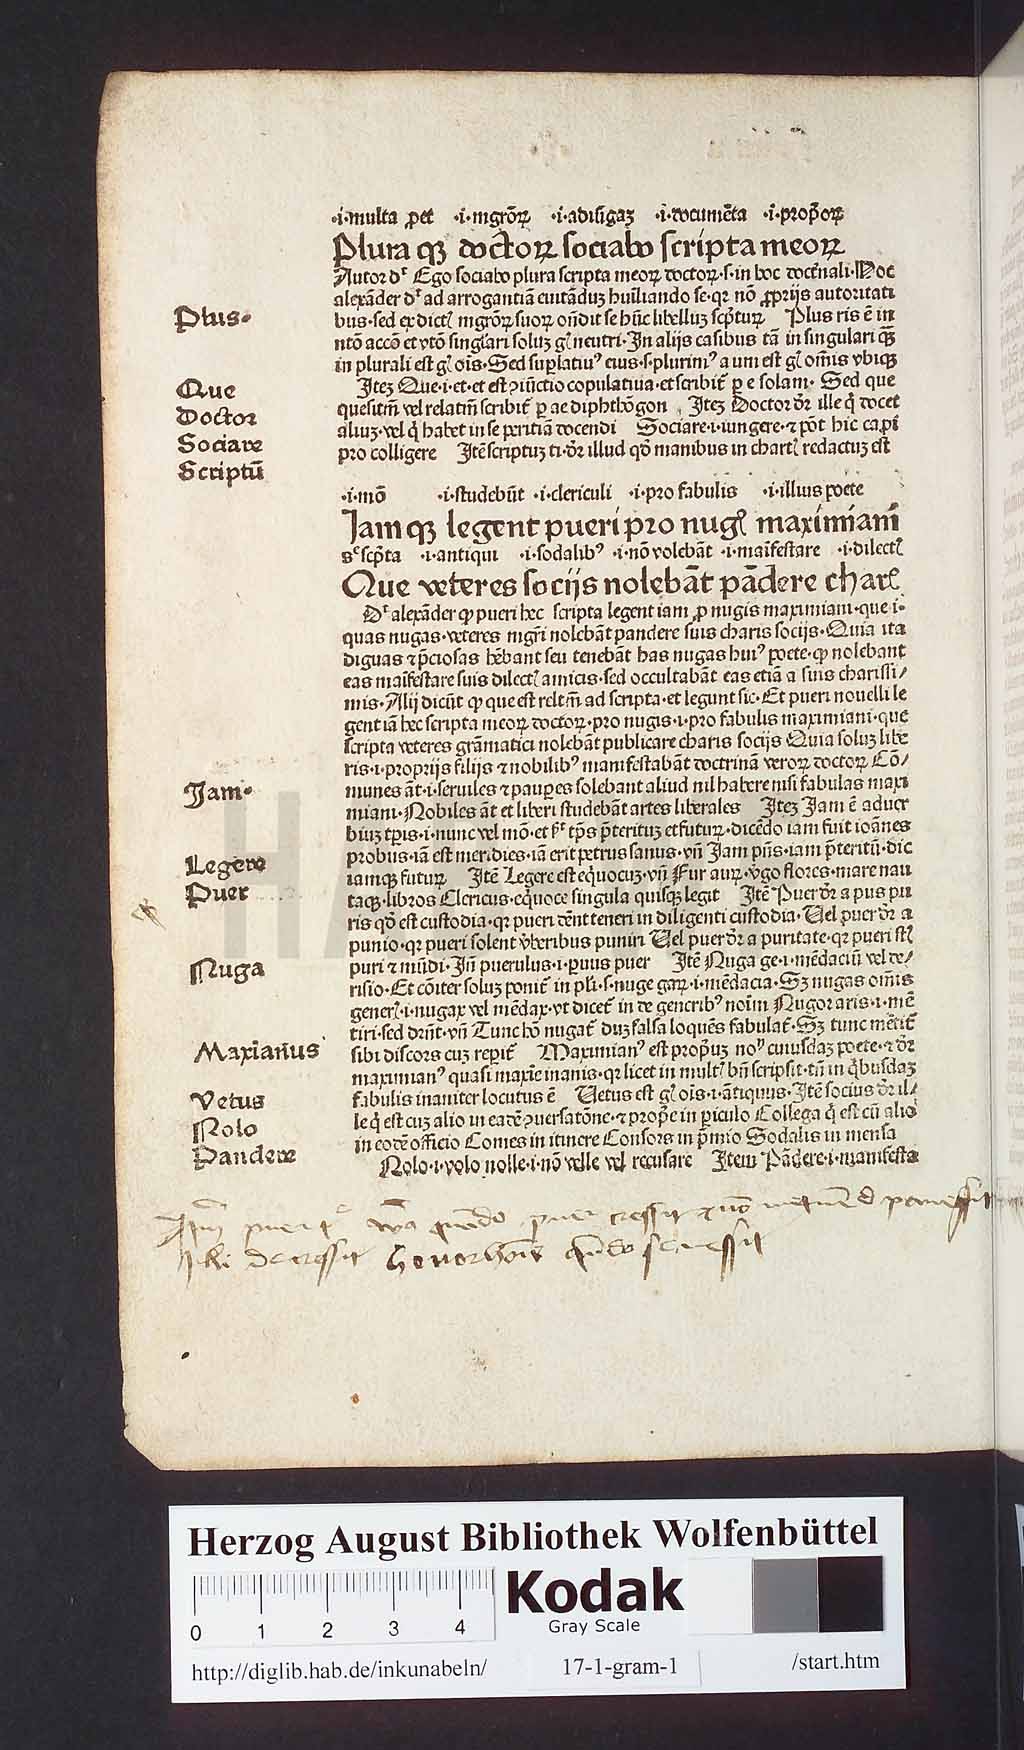 ·i·multa p̱ꝫ et ·i·mgr̄oꝝ ·i·adiūgaꝫ ·i·documēta ·i·proṕoꝝ
Plura qꝫ doctoꝝ sociabo scripta meoꝝ
Autor dʳ Ego sociabo plura scripta meoꝝ doctoꝝ·s·in hoc doctꝛnali·Hoc
alexāder dʳ ad arrogantiā euitāduꝫ hūiliando se·qꝛ nō ꝓprijs autoritati
bus·sed ex dictꝭ mgr̄oꝝ suoꝝ oñdit se hūc libelluꝫ scp̄turꝝ Plus ris ē in
Plus·
ntō accō et vtō singl̄ari soluꝫ gꝭ neutri·In alijs casibus tā in singulari qꝫ
in plurali est gꝭ oīs·Sed suꝑlatiuꝰ eius·s·plurimꝰ a um est gꝭ om̄is vbiqꝫ
Iteꝫ Que·i·et·et est ꝯiūctio copulatiua·et scribit̄ ꝑ e solam· Sed que
Que
quesitiū vel relatiū scribit̄ ꝑ ae diphthōgon Iteꝫ Doctor dꝛ̄ ille q̇ docet
Doctor
aliuꝫ·vel q̇ habet in se peritiā docendi Sociare·i·iungere·⁊ pōt hic capi
Sociare
pro colligere Itē scriptuꝫ ti·dꝛ̄ illud qd̄ manibus in chartꝭ redactuꝫ est
Scriptū
·i·mō ·i·studebūt ·i·clericuli ·i·pro fabulis ·i·illius poete
Iam qꝫ legent pueri pro nugꝭ maximiani
sᶜscp̄ta ·i·antiqui ·i·sodalibꝰ ·i·nō volebāt ·i·maīfestare ·i·dilectꝭ
Que veteres socijs nolebāt pādere charꝭ
Dʳ alexāder ꝙ pueri hec scripta legent iam ꝓ nugis maximiani·que i·
quas nugas·veteres mgr̄i nolebāt pandere suis charis socijs·Quia ita
diguas ⁊ p̄ciosas hēbant seu tenebāt has nugas huiꝰ poete·ꝙ nolebant
eas maīfestare suis dilectꝭ amicis·sed occultabāt eas etiā a suis charissi/
mis·Alij dicūt ꝙ que est reltm̄ ad scripta·et legunt sic·Et pueri nouelli le
gent iā hec scripta meoꝝ doctoꝝ·pro nugis·i·pro fabulis maximiani·que
scripta veteres grāmatici nolebāt publicare charis socijs Quia soluꝫ libe
ris·i·proprijs filijs ⁊ nobilibꝰ manifestabāt doctrinā veroꝝ doctoꝝ Cō/
munes āt·i·seruiles ⁊ pauꝑes solebant aliud nil habere nisi fabulas maxi
Iam·
miani·Nobiles āt et liberi studebāt artes liberales Iteꝫ Jam ē aduer
biuꝫ tꝑis·i·nunc vel mō·et ſʳ tp̄s p̄terituꝫ et futurꝝ·dicēdo iam fuit ioānes
probus·iā est meridies·iā erit petrus sanus·vn̄ Jam pn̄s·iam p̄teritū·dic
iamqꝫ futurꝝ Itē Legere est eq̇uocuꝫ·vn̄ Fur aurꝝ·v̓go flores·mare nau
Legere
taqꝫ·libros Clericus·eq̇uoce singula quisqꝫ legit Itē Puer dꝛ̄ a pus pu
Puer
ris qd̄ est custodia·qꝛ pueri dēnt teneri in diligenti custodia·Uel puer dꝛ̄ a
punio·qꝛ pueri solent v̓beribus puniri Uel puer dꝛ̄ a puritate·qꝛ pueri st̄
puri ⁊ mūdi·In̄ puerulus·i·ꝑuus puer Itē Nuga ge·i·mēdaciū vel de/
Nuga
risio·Et cōiter soluꝫ ponit̄ in pli·s·nuge garꝝ·i·mēdacia·Sꝫ nugas om̄is
generꝭ·i·nugax vel mēdax·vt dicet̄ in de generibꝰ noīm Nugor aris·i·mē
tiri·sed drn̄t·vn̄ Tunc hō nugat̄ duꝫ falsa loquēs fabulat̄·Sꝫ tunc mētit̄
sibi discors cuꝫ reꝑit̄ Maximianꝰ est propꝛuꝫ noᵐ cuiusdaꝫ poete·⁊ dꝛ̄
Maxianus
maximianꝰ quasi maxīe inanis·qꝛ licet in multꝭ bn̄ scripsit·tn̄ in q̇busdaꝫ
fabulis inaniter locutus ē Uetus est gꝭ oīs·i·ātiquus·Itē socius dꝛ̄ il/
Vetus
le q̇ est cuꝫ alio in eadē ꝯuersatōne·⁊ prop̄e in ꝑiculo Collega q̇ est cū alio
Nolo
in eodē officio Comes in itinere Consors in p̄mio Sodalis in mensa
Pandere
Nolo·i·volo nolle·i·nō velle vel recusare Item Pādere·i·manifesta
puer cressit
decressit
Herzog August Bibliothek Wolfenbüttel
0 1 2 3 4
Kodak
Gray Scale
http://diglib.hab.de/inkunabeln/ 17-1-gram-1 /start.htm
HAB